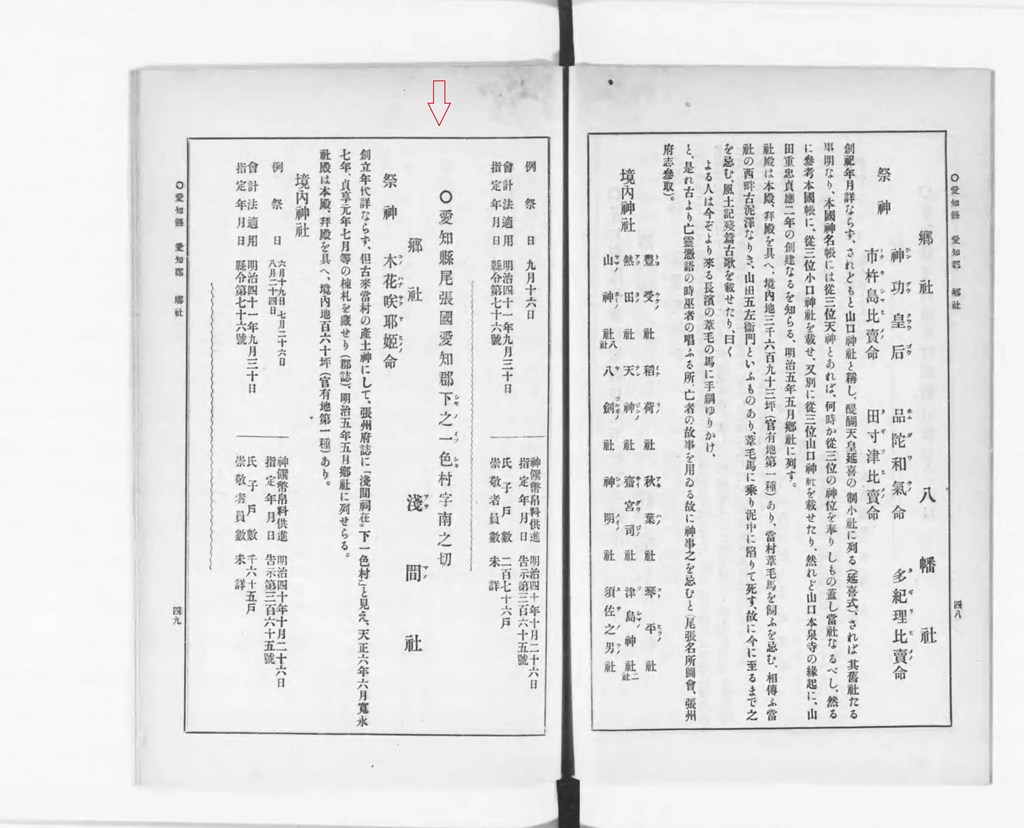 〇愛知縣 愛知郡 鄕社
四八
鄕社 八幡社
祭神 神功皇后 品陀和氣命 多紀理比賣命
市杵島比賣命 田寸津比賣命
創祀年月詳ならず、されどもと山口神社と稱し、醍醐天皇延喜の制小社に列る(延喜式)、されば其舊社たる
事明なり、本國神名帳には從三位天神とあれば、何時か從三位の神位を奉りしもの蓋し當社なるべし、然る
に參考本國帳に、從三位小口神社を載せ、又別に從三位山口神社を載せたり、然れど山口本泉寺の緣起に、山
田重忠貞應二年の創建なるを知らる、明治五年五月鄕社に列す。
社殿は本殿、拜殿を具へ、境內地三千六百九十二坪(官有地第一種)あり、當村葦毛馬を飼ふを忌む、相傳ふ當
社の西畔古泥澤なりき、山田五左衞門といふものあり、葦毛馬に乘り泥中に陷りて死す、故に今に至るまで之
を忌む、風土記殘篇古歌を載せたり、曰く
よる人は今ぞより來る長濱の葦毛の馬に手綱ゆりかけ、
と、是れ古より亡靈憑語の時巫者の唱ふる所、亡者の故事を用ゐる故に神事之を忌むと(尾張名所圖會、張州
府志參取)。
境內神社
豐受社 稻荷社 秋葉社 琴平社
熱田社 天神社 齋宮司社 津島神社二社
山神社八社 八劍社 神明社 須佐之男社
例祭日 九月十六日
會計法適用 明治四十一年九月三十日
指定年月日 縣令第七十六號
神饌幣帛料供進 明治四十年十月二十六日
指定年月日 告示第三百六十五號
氏子戶數 二百七十六戶
崇敬者員數 未詳
〇愛知縣尾張國愛知郡下之一色村字南之切
鄕社 淺間社
祭神 木花咲耶姬命
創立年代詳ならず、但古來當村の產土神にして、張州府誌に「淺間祠在下一色村」と見え、天正六年六月寬永
七年、貞享元年七月等の棟札を藏せり(郡誌)、明治五年五月鄕社に列せらる。
社殿は本殿、拜殿を具へ、境內地百六十坪(官有地第一種)あり。
境內神社
例祭日 六月十九日、七月二十六日
八月二十四日
會計法適用 明治四十一年九月三十日
指定年月日 縣令第七十六號
神饌幣帛料供進 明治四十年十月二十六日
指定年月日 告示第三百六十五號
氏子戶數 千六十五戶
崇敬者員數 未詳
〇愛知縣 愛知郡 鄕社
四九